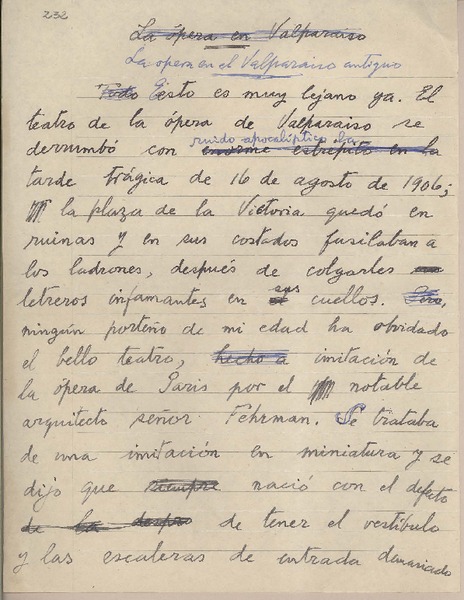 232
La ópera en Valparaiso
La opera en el Valparaiso antiguo
Todo Esto es muy lejano ya. El
teatro de la ópera de Valparaiso se
ruido apocalíptico la
derrumbó con enorme estrepito en la
tarde trágica de 16 de agosto de 1906;
la plaza de la Victoria quedó en
ruinas y en sus costados fusilaban a
los ladrones, después de colgarles
sus
letreros infamantes en cuellos. Pero,
ningún porteño de mi edad ha olvidado
el bello teatro, hecho a imitación de
la ópera de Paris por el notable
arquitecto señor Fehrman. Se trataba
de una imitación en miniatura y se
dijo que siempre nació con el defecto
de la despro de tener el vestíbulo
y las escaleras de entrada demasiado